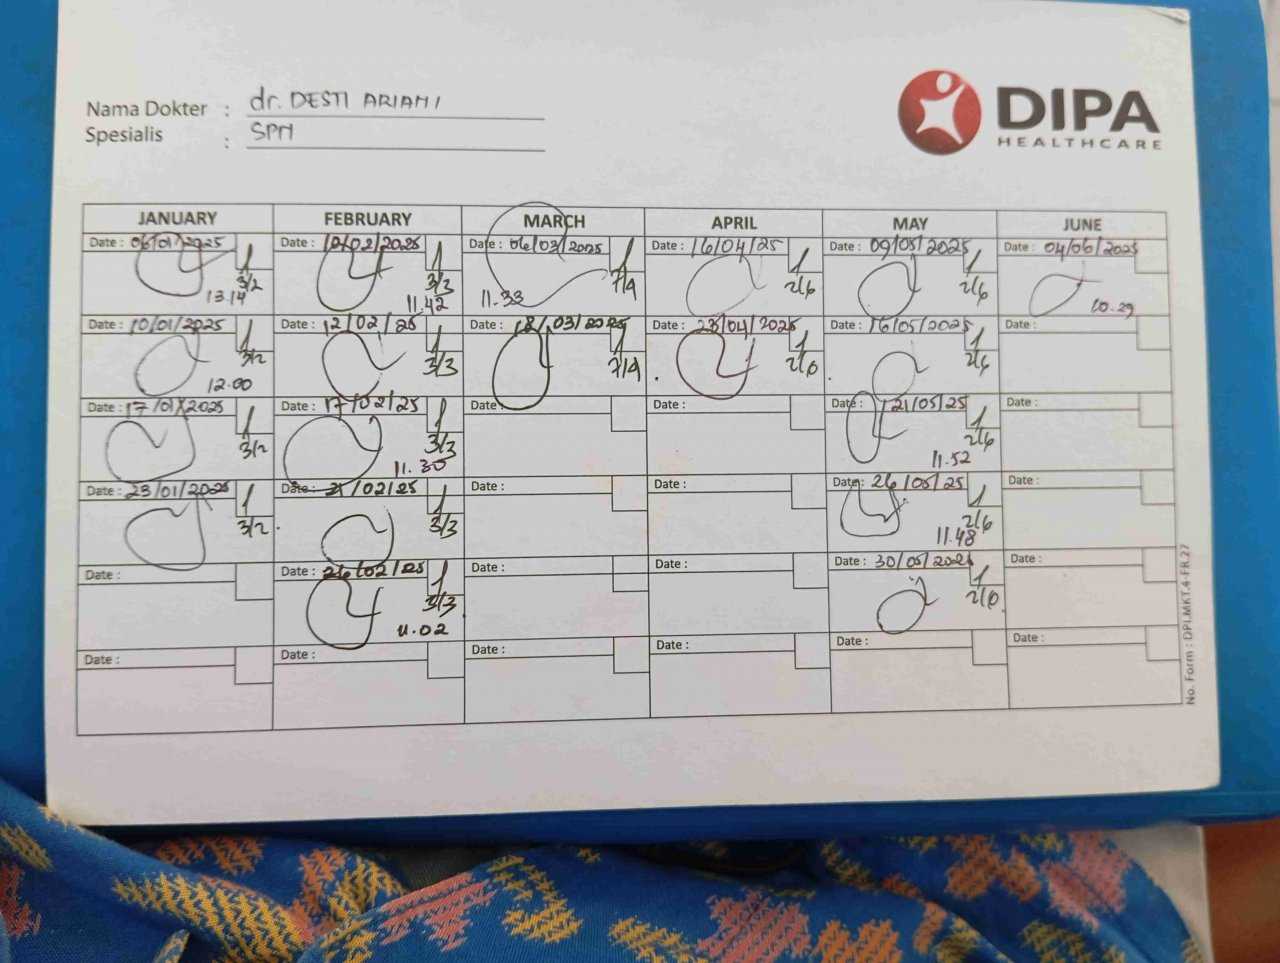 Nama Dokter : dr. DESTI ARIANI
Spesialis : SPM
DIPA
HEALTHCARE
JANUARY FEBRUARY MARCH APRIL MAY JUNE
Date : 06/01/2025 Date : 10/02/2025 Date : 06/03/2025 Date : 16/04/25 Date : 09/05/2025 Date : 04/06/2025
3/2 3/3 7/4 2/6 2/6
13.14 11.42 11.33 10.29
Date : 10/01/2025 Date : 12/02/25 Date : 18/03/2025 Date : 23/04/2025 Date : 16/05/2025 Date :
3/2 3/3 7/4 2/6 2/6
12.00
Date : 17/01/2025 Date : 17/02/25 Date : Date : Date : 21/05/25 Date :
3/2 3/3 2/6
11.30 11.52
Date : 23/01/2025 Date : 21/02/25 Date : Date : Date : 26/05/25 Date :
3/2 3/3 2/6
11.48
Date : Date : 26/02/25 Date : Date : Date : 30/05/2025 Date :
3/3 2/6
11.02
Date : Date : Date : Date : Date : Date :
No. Form : DPI.MKT.4-FR.27